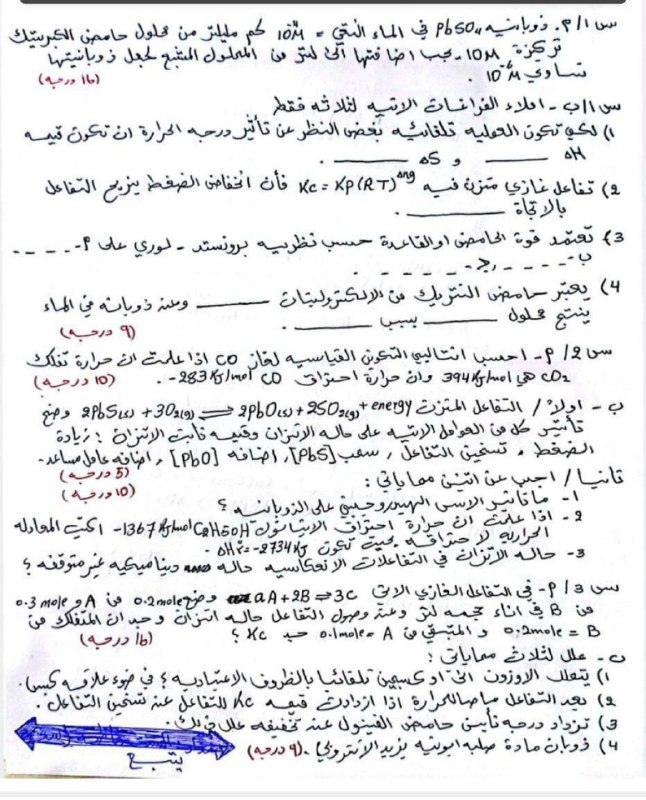 س1/P. ذوبانيه PbSO₄ في الماء النقي = 10⁻⁴M كم مليلتر من محلول حامض الكبريتيك
تركيزة 10M يجب اضافتها الى لتر من المحلول المشبع لجعل ذوبانيتها
تساوي 10⁻⁶M. (16 درجه)
س1/ب - املاء الفراغات الاتيه لثلاثه فقط
1) لكي تكون العمليه تلقائيه بغض النظر عن تأثير درجه الحرارة ان تكون قيمه
ΔH ______ و ΔS ______ .
2) تفاعل غازي متزن فيه Kc = Kp(RT)^Δng فأن انخفاض الضغط يزيح التفاعل
بالاتجاة ______ .
3) تعتمد قوة الحامض او القاعدة حسب نظريه برونستد - لوري على P- ----
ب- ---- , ج- ---- .
4) يعتبر حامض النتريك من الالكتروليتات ______ وعند ذوبانه في الماء
ينتج محلول ______ بسبب ______ . (9 درجه)
س2/P- احسب انثالبي التكوين القياسيه لغاز CO اذا علمت ان حرارة تفكك
CO₂ هي 394 KJ/mol وان حرارة احتراق CO -283 KJ/mol. (10 درجه)
ب - اولاً / التفاعل المتزن 2PbS(s) + 3O₂(g) ⇌ 2PbO(s) + 2SO₂(g) + energy وضح
تأثير كل من العوامل الاتيه على حاله الاتزان وقيمه ثابت الاتزان : زيادة
الضغط , تسخين التفاعل , سحب [PbS] , اضافه [PbO] , اضافه عامل مساعد-
(5 درجه)
ثانيا / اجب عن اثنين مما ياتي : (10 درجه)
1- ما تاثير الاس الهيدروجيني على الذوبانيه ؟
2- اذا علمت ان حرارة احتراق الايثانول C₂H₅OH -1367 KJ/mol اكتب المعادله
الحراريه لاحتراقه بحيث تكون ΔHr = -2734 KJ .
3- حاله الاتزان في التفاعلات الانعكاسيه حاله ديناميكيه غير متوقفه ؟
س3/P- في التفاعل الغازي الاتي aA + 2B ⇌ 3C وضع 0.2 mole من A و 0.3 mole
من B في اناء حجمه لتر وعند وصول التفاعل حاله اتزان وجد ان المتفكك من
B = 0.2 mole و المتبقي من A = 0.1 mole جد Kc ؟ (16 درجه)
ب - علل لثلاث مما ياتي :
1) يتفكك الاوزون الى اوكسجين تلقائيا بالظروف الاعتياديه ؟ في ضوء علاقه كبس.
2) يعد التفاعل ماص للحرارة اذا ازدادت قيمه Kc للتفاعل عند تسخين التفاعل .
3) تزداد درجه تأين حامض الفينول عند تخفيفه علل ذلك.
4) ذوبان مادة صلبه ايونيه يزيد الانتروبي . (9 درجه)
يتبع